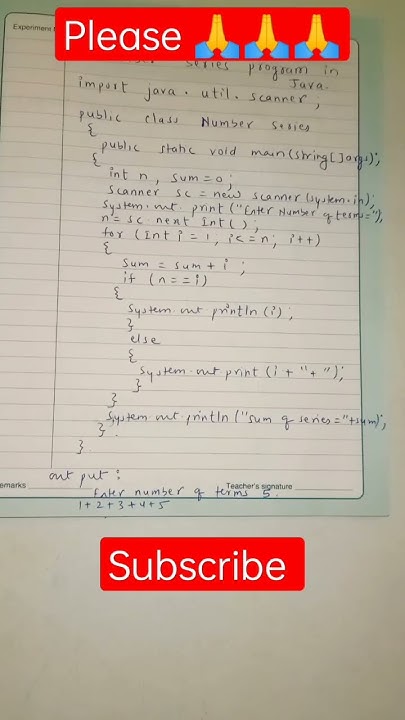 Please 🙏🙏🙏
Experiment
series program in
Java.
import java.util.scanner,
public class Number series
{
public static void main(string[]args);
{
int n, sum=0;
scanner sc = new scanner(system.in);
system.out.print("Enter Number of terms=");
n = sc.next Int();
for (Int i = 1, i<=n; i++)
{
sum = sum + i ;
if (n==i)
{
system.out println (i) ;
}
else
{
system.out print (i + "+ ");
}
}
system.out.println ("sum of series="+sum);
}
}
out put :
emarks
Teacher's signature
Enter number of terms 5.
1+2+3+4+5
Subscribe